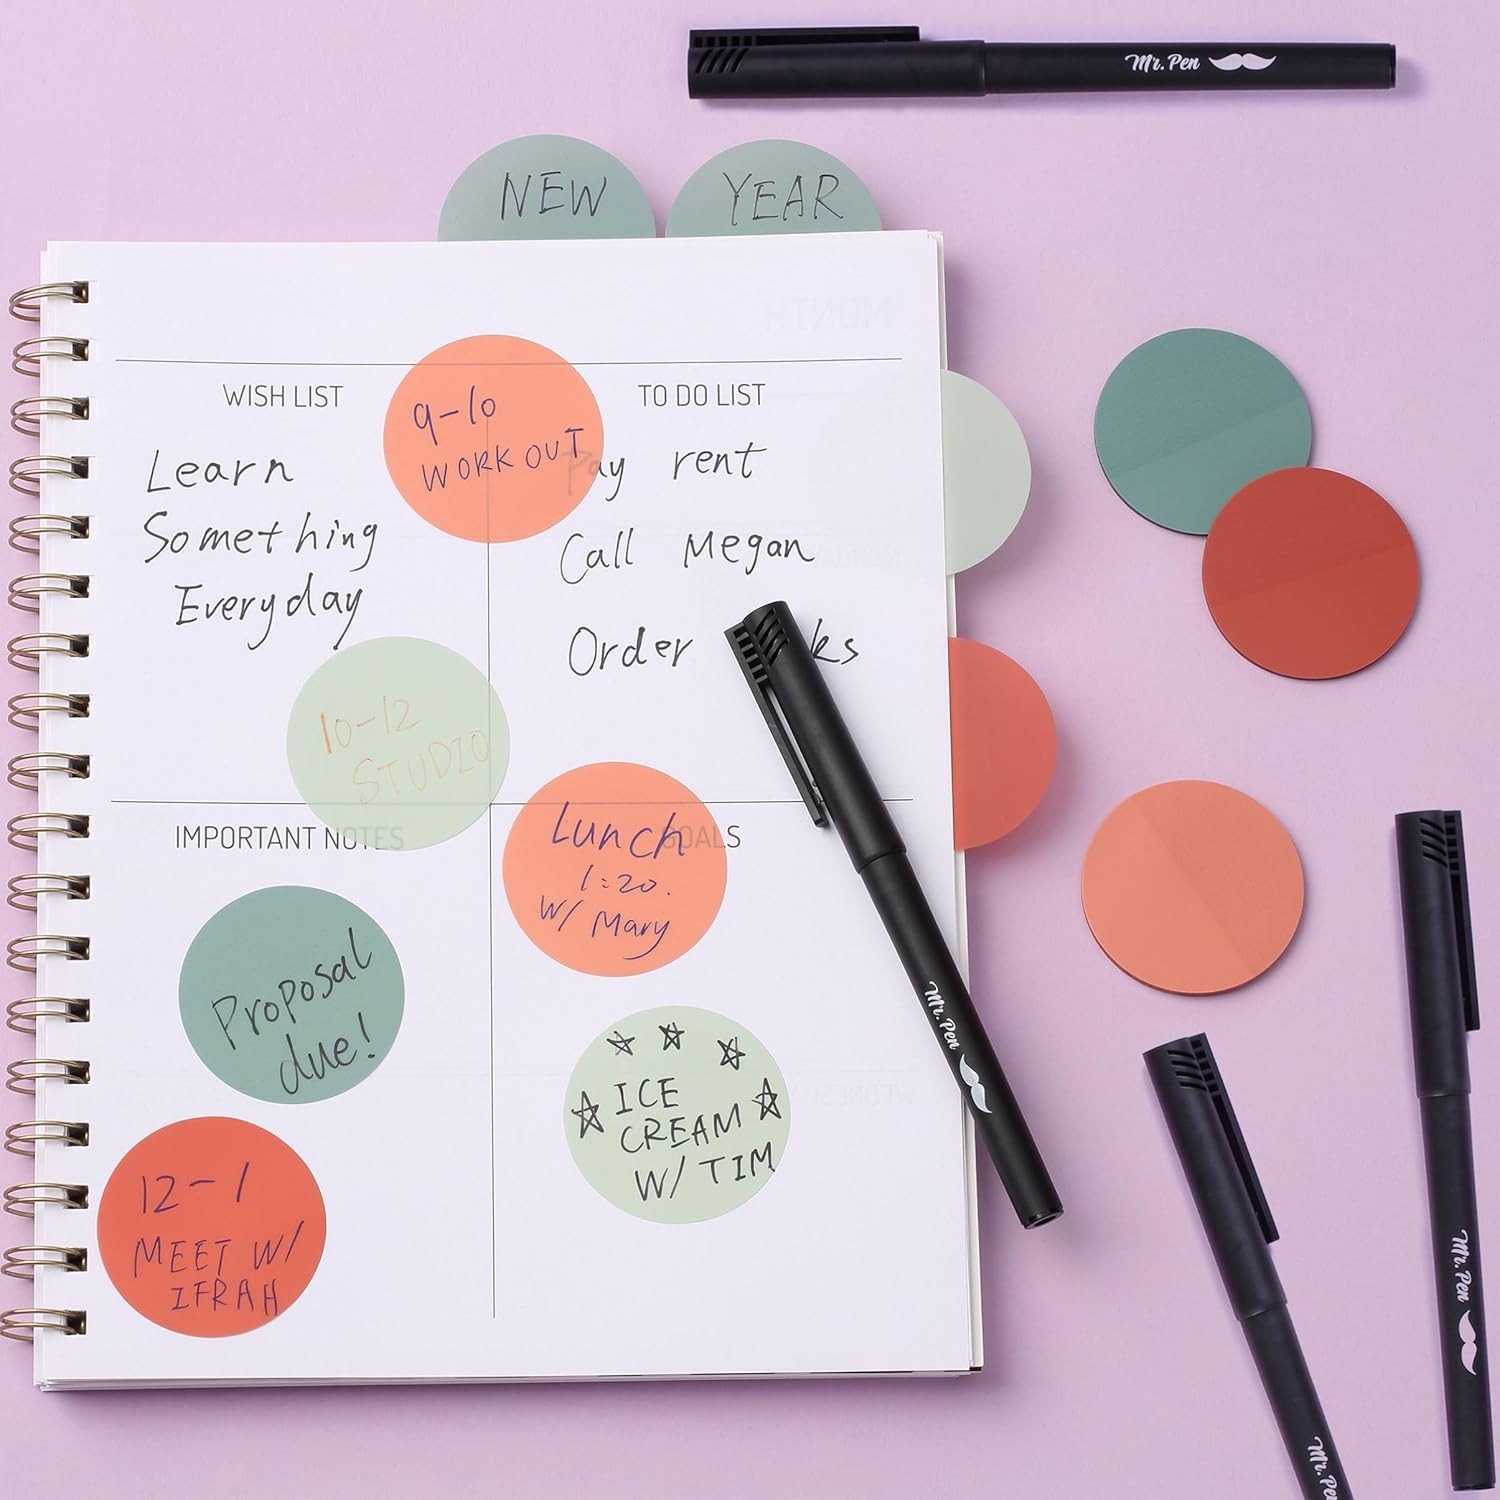 Mr. Pen
NEW YEAR
WISH LIST
Learn
Something
Everyday
9-10
WORK OUT
TO DO LIST
Pay rent
Call Megan
Order
10-12
STUDIO
IMPORTANT NOTES
Proposal
due!
12-1
MEET W/
IFRAH
GOALS
Lunch
1:20.
W/ Mary
ICE
CREAM
W/ TIM
Mr. Pen
Mr. Pen
Mr. Pen
MONTH